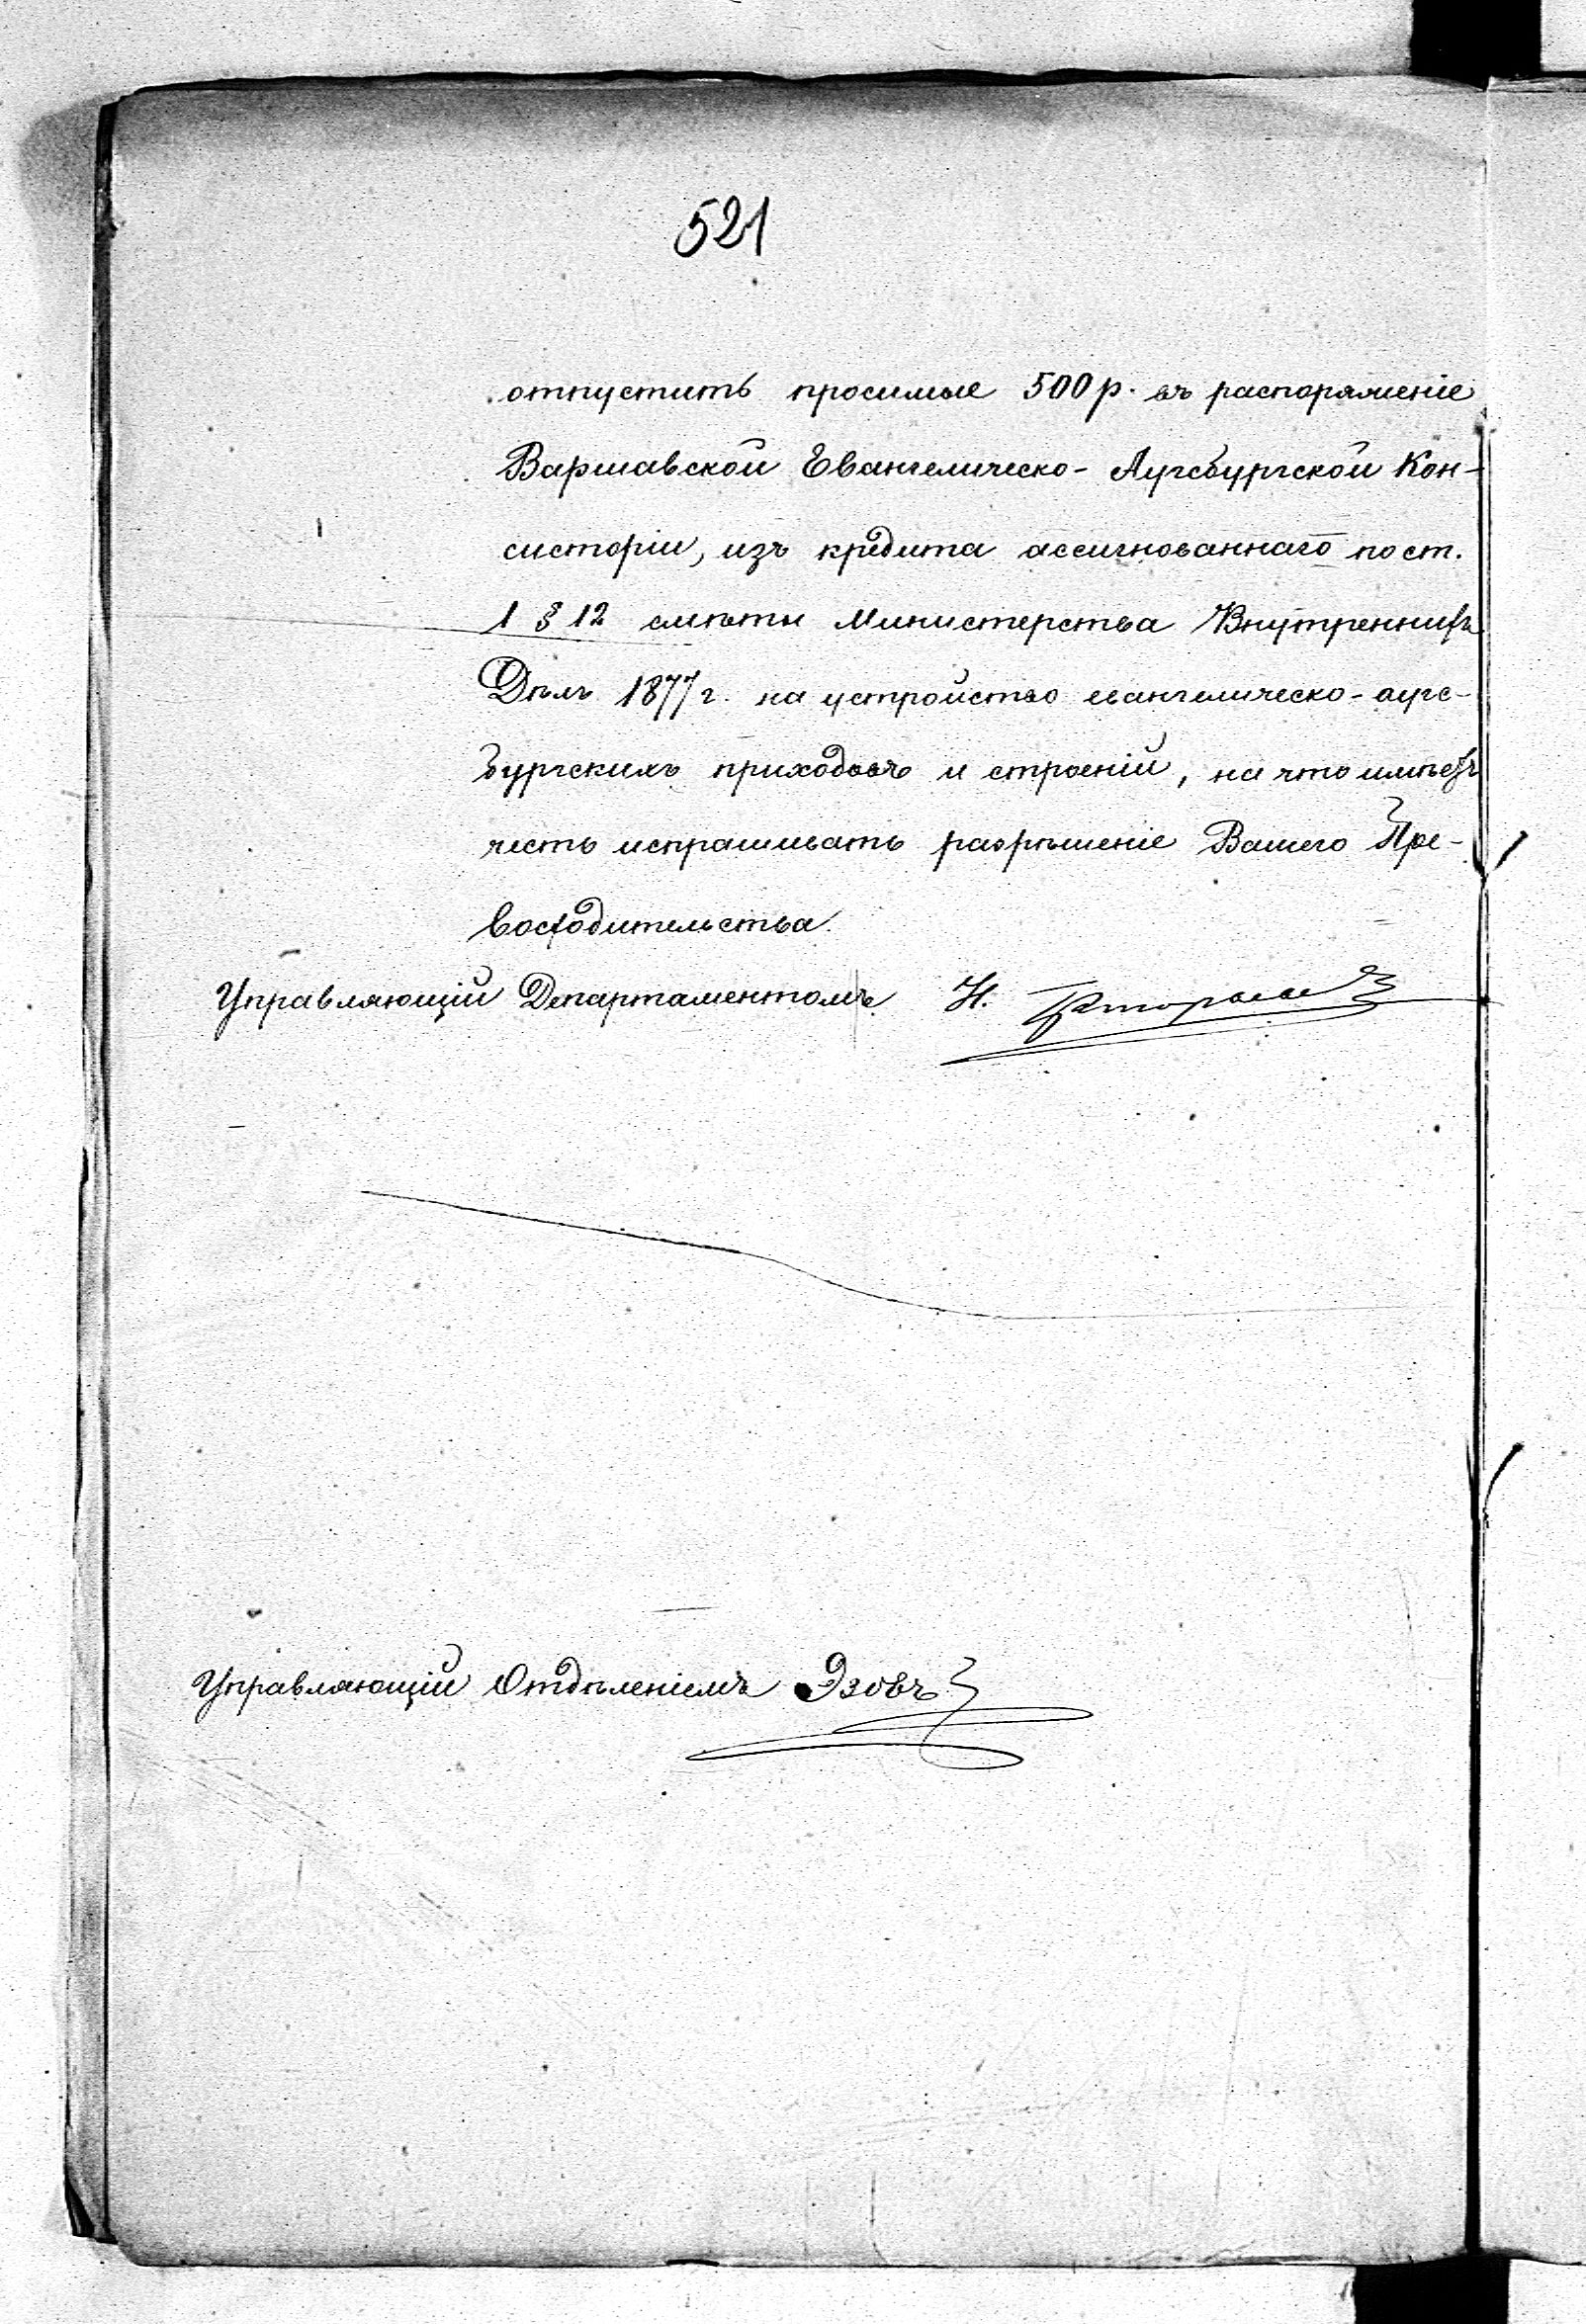 521
отпустить просимые 500 р. въ распоряженіе
Варшавской Евангелическо-Аугсбургской Кон-
систоріи, изъ кредита ассигнованнаго по ст.
1 § 12 смѣты Министерства Внутреннихъ
Дѣлъ 1877 г. на устройство евангелическо-аугс-
бургскихъ приходовъ и строеній, на что имѣетъ
честь испрашивать разрѣшеніе Вашего Пре-
восходительства.
Управляющій Департаментомъ Н.
Управляющій Отдѣленіемъ Эзовъ